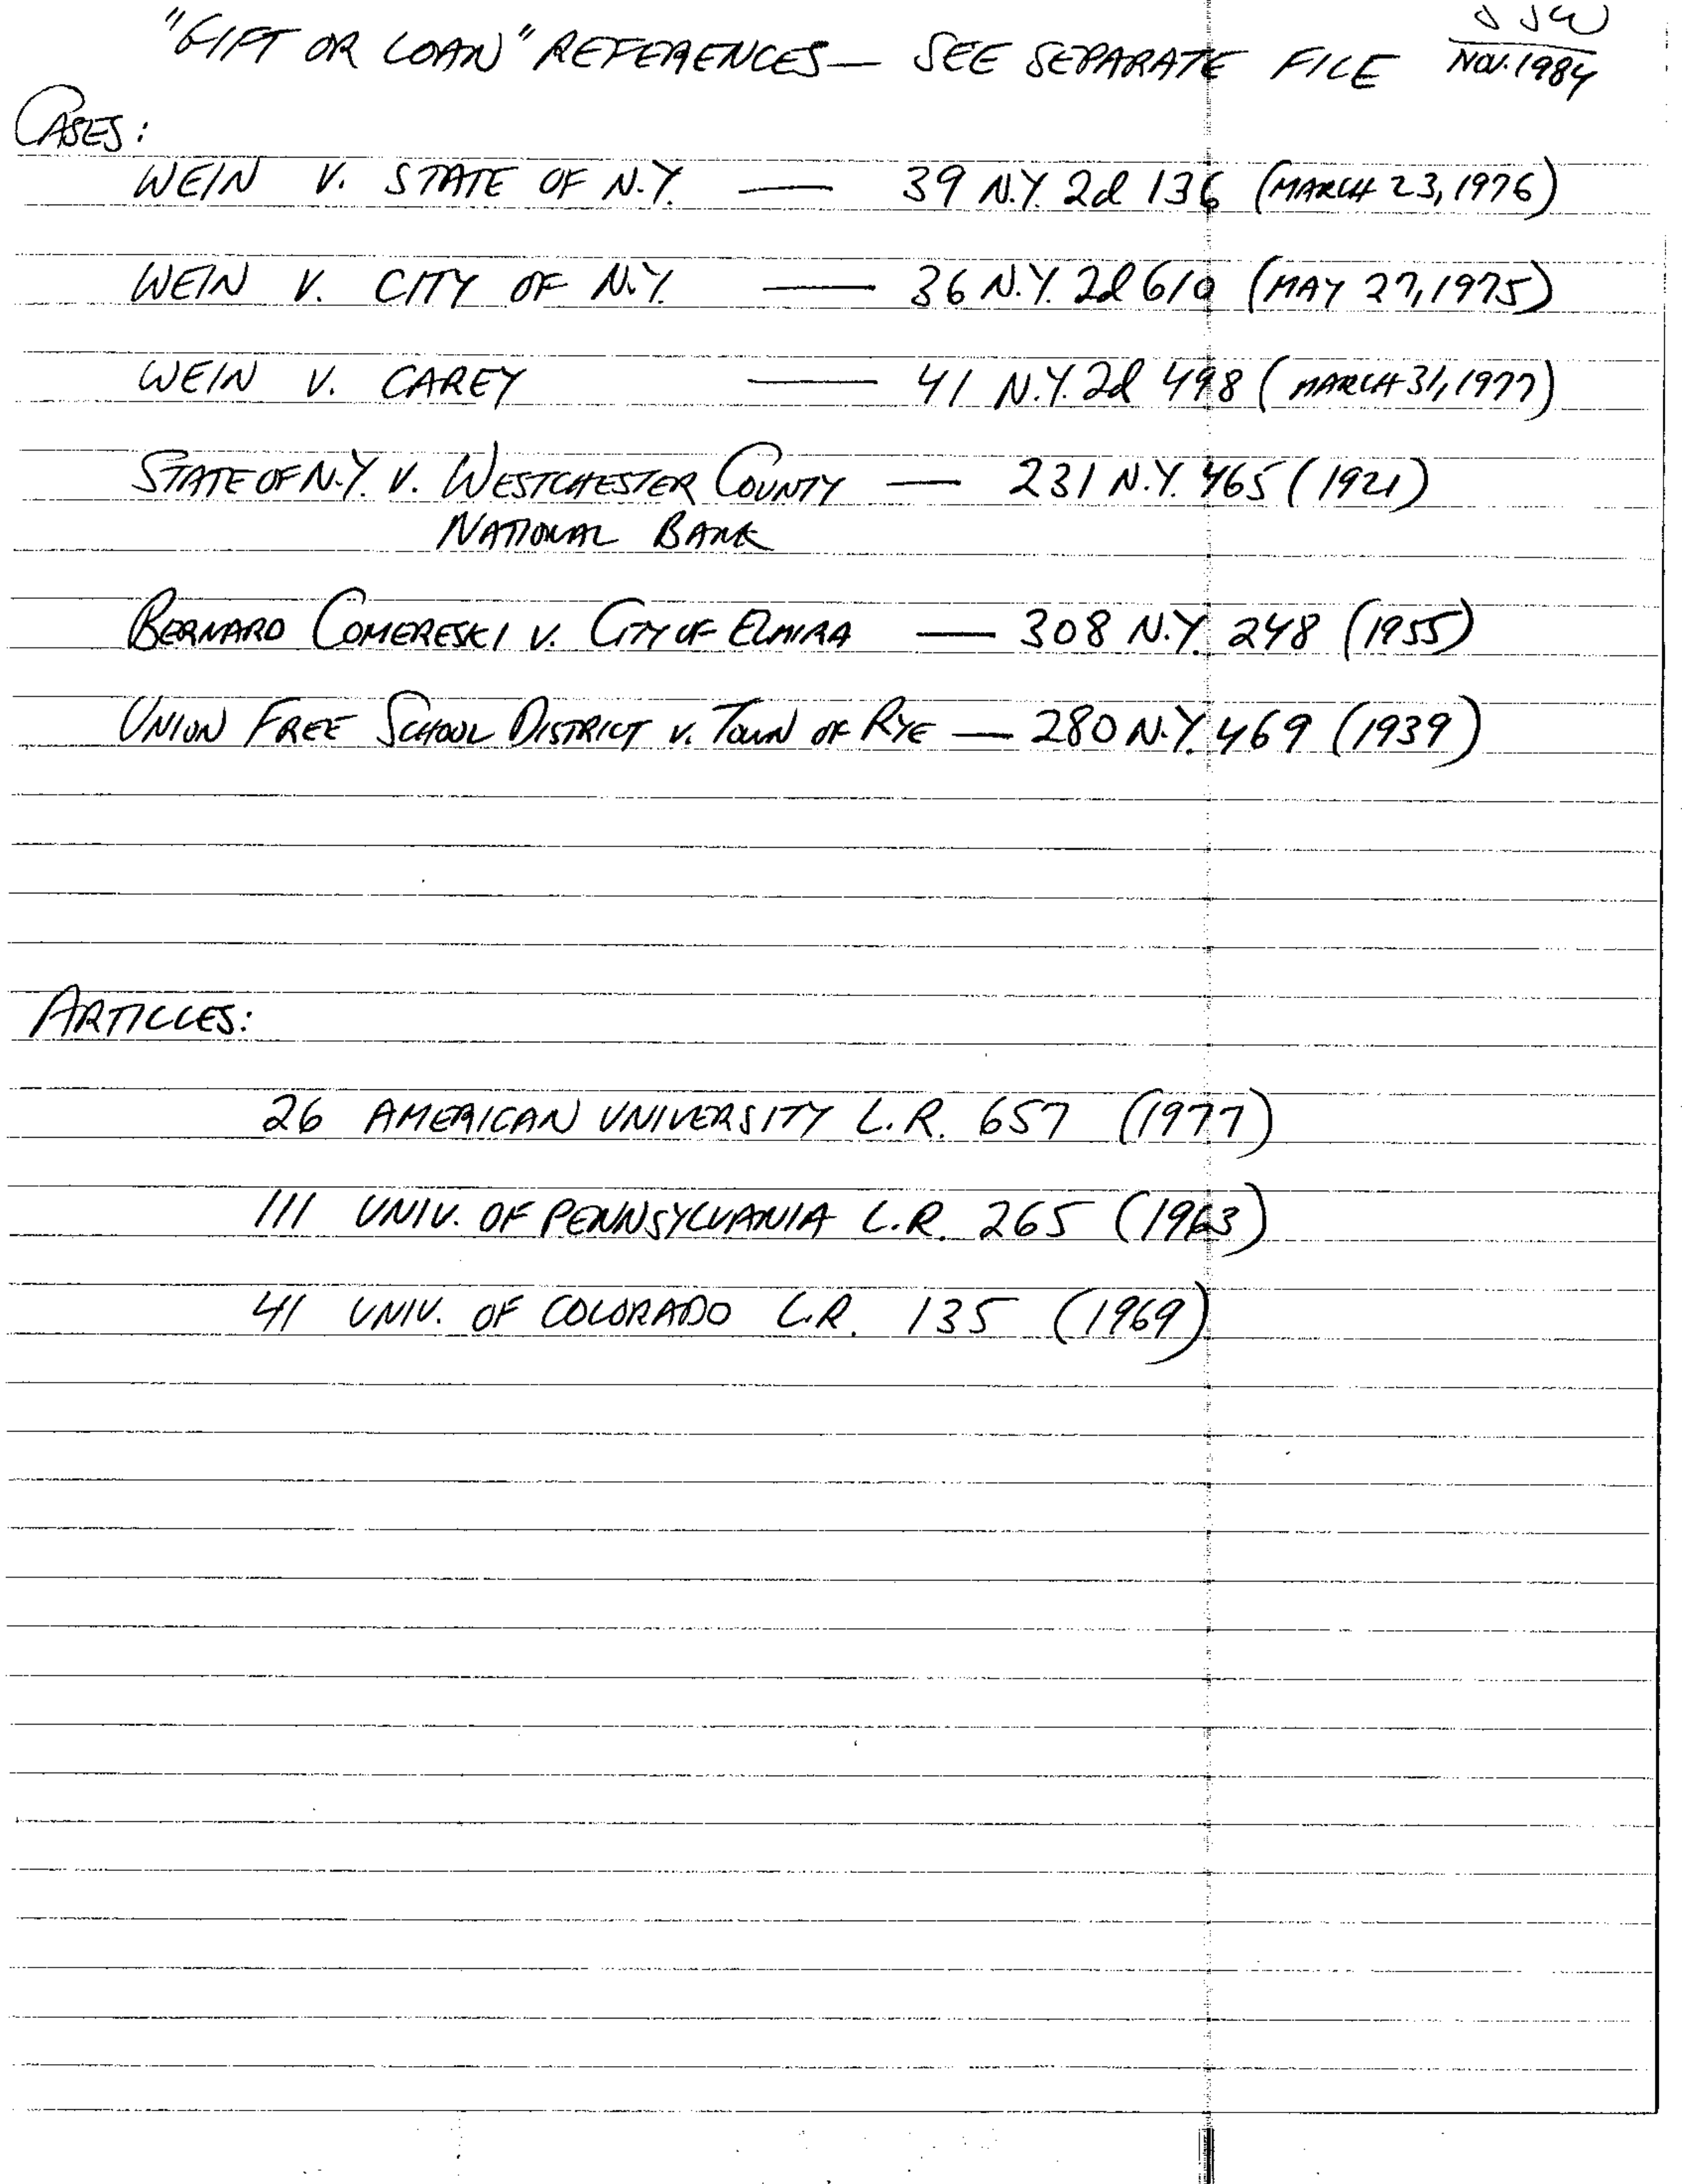 "GIFT OR LOAN" REFERENCES — SEE SEPARATE FILE
JJW
NOV. 1984
CASES:
WEIN V. STATE OF N.Y. — 39 N.Y. 2d 136 (MARCH 23, 1976)
WEIN V. CITY OF N.Y. — 36 N.Y. 2d 610 (MAY 27, 1975)
WEIN V. CAREY — 41 N.Y. 2d 498 (MARCH 31, 1977)
STATE OF N.Y. V. WESTCHESTER COUNTY — 231 N.Y. 465 (1921)
NATIONAL BANK
BERNARD COMERESKI V. CITY OF ELMIRA — 308 N.Y. 248 (1955)
UNION FREE SCHOOL DISTRICT V. TOWN OF RYE — 280 N.Y. 469 (1939)
ARTICLES:
26 AMERICAN UNIVERSITY L.R. 657 (1977)
111 UNIV. OF PENNSYLVANIA L.R. 265 (1963)
41 UNIV. OF COLORADO L.R. 135 (1969)